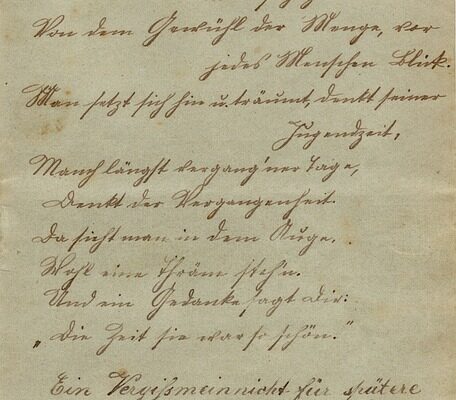 Von dem Gewühl der Menge, vor
jedes Menschen Blick.
Man setzt sich hin u. träumt, denkt seiner
Jugendzeit,
Manch längst vergang'ner Tage,
Denkt der Vergangenheit.
Da sieht man in dem Auge.
Wohl eine Thrän steh'n.
Und ein Gedanke sagt Dir:
„Die Zeit sie war so schön."
Ein Vergißmeinnicht für spätere